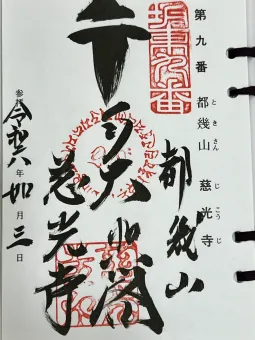 第九番 都幾山 慈光寺
ときさん じこうじ
坂東九番
都幾山
千手大悲閣
慈光寺
参拝 令和六年 如月 三日